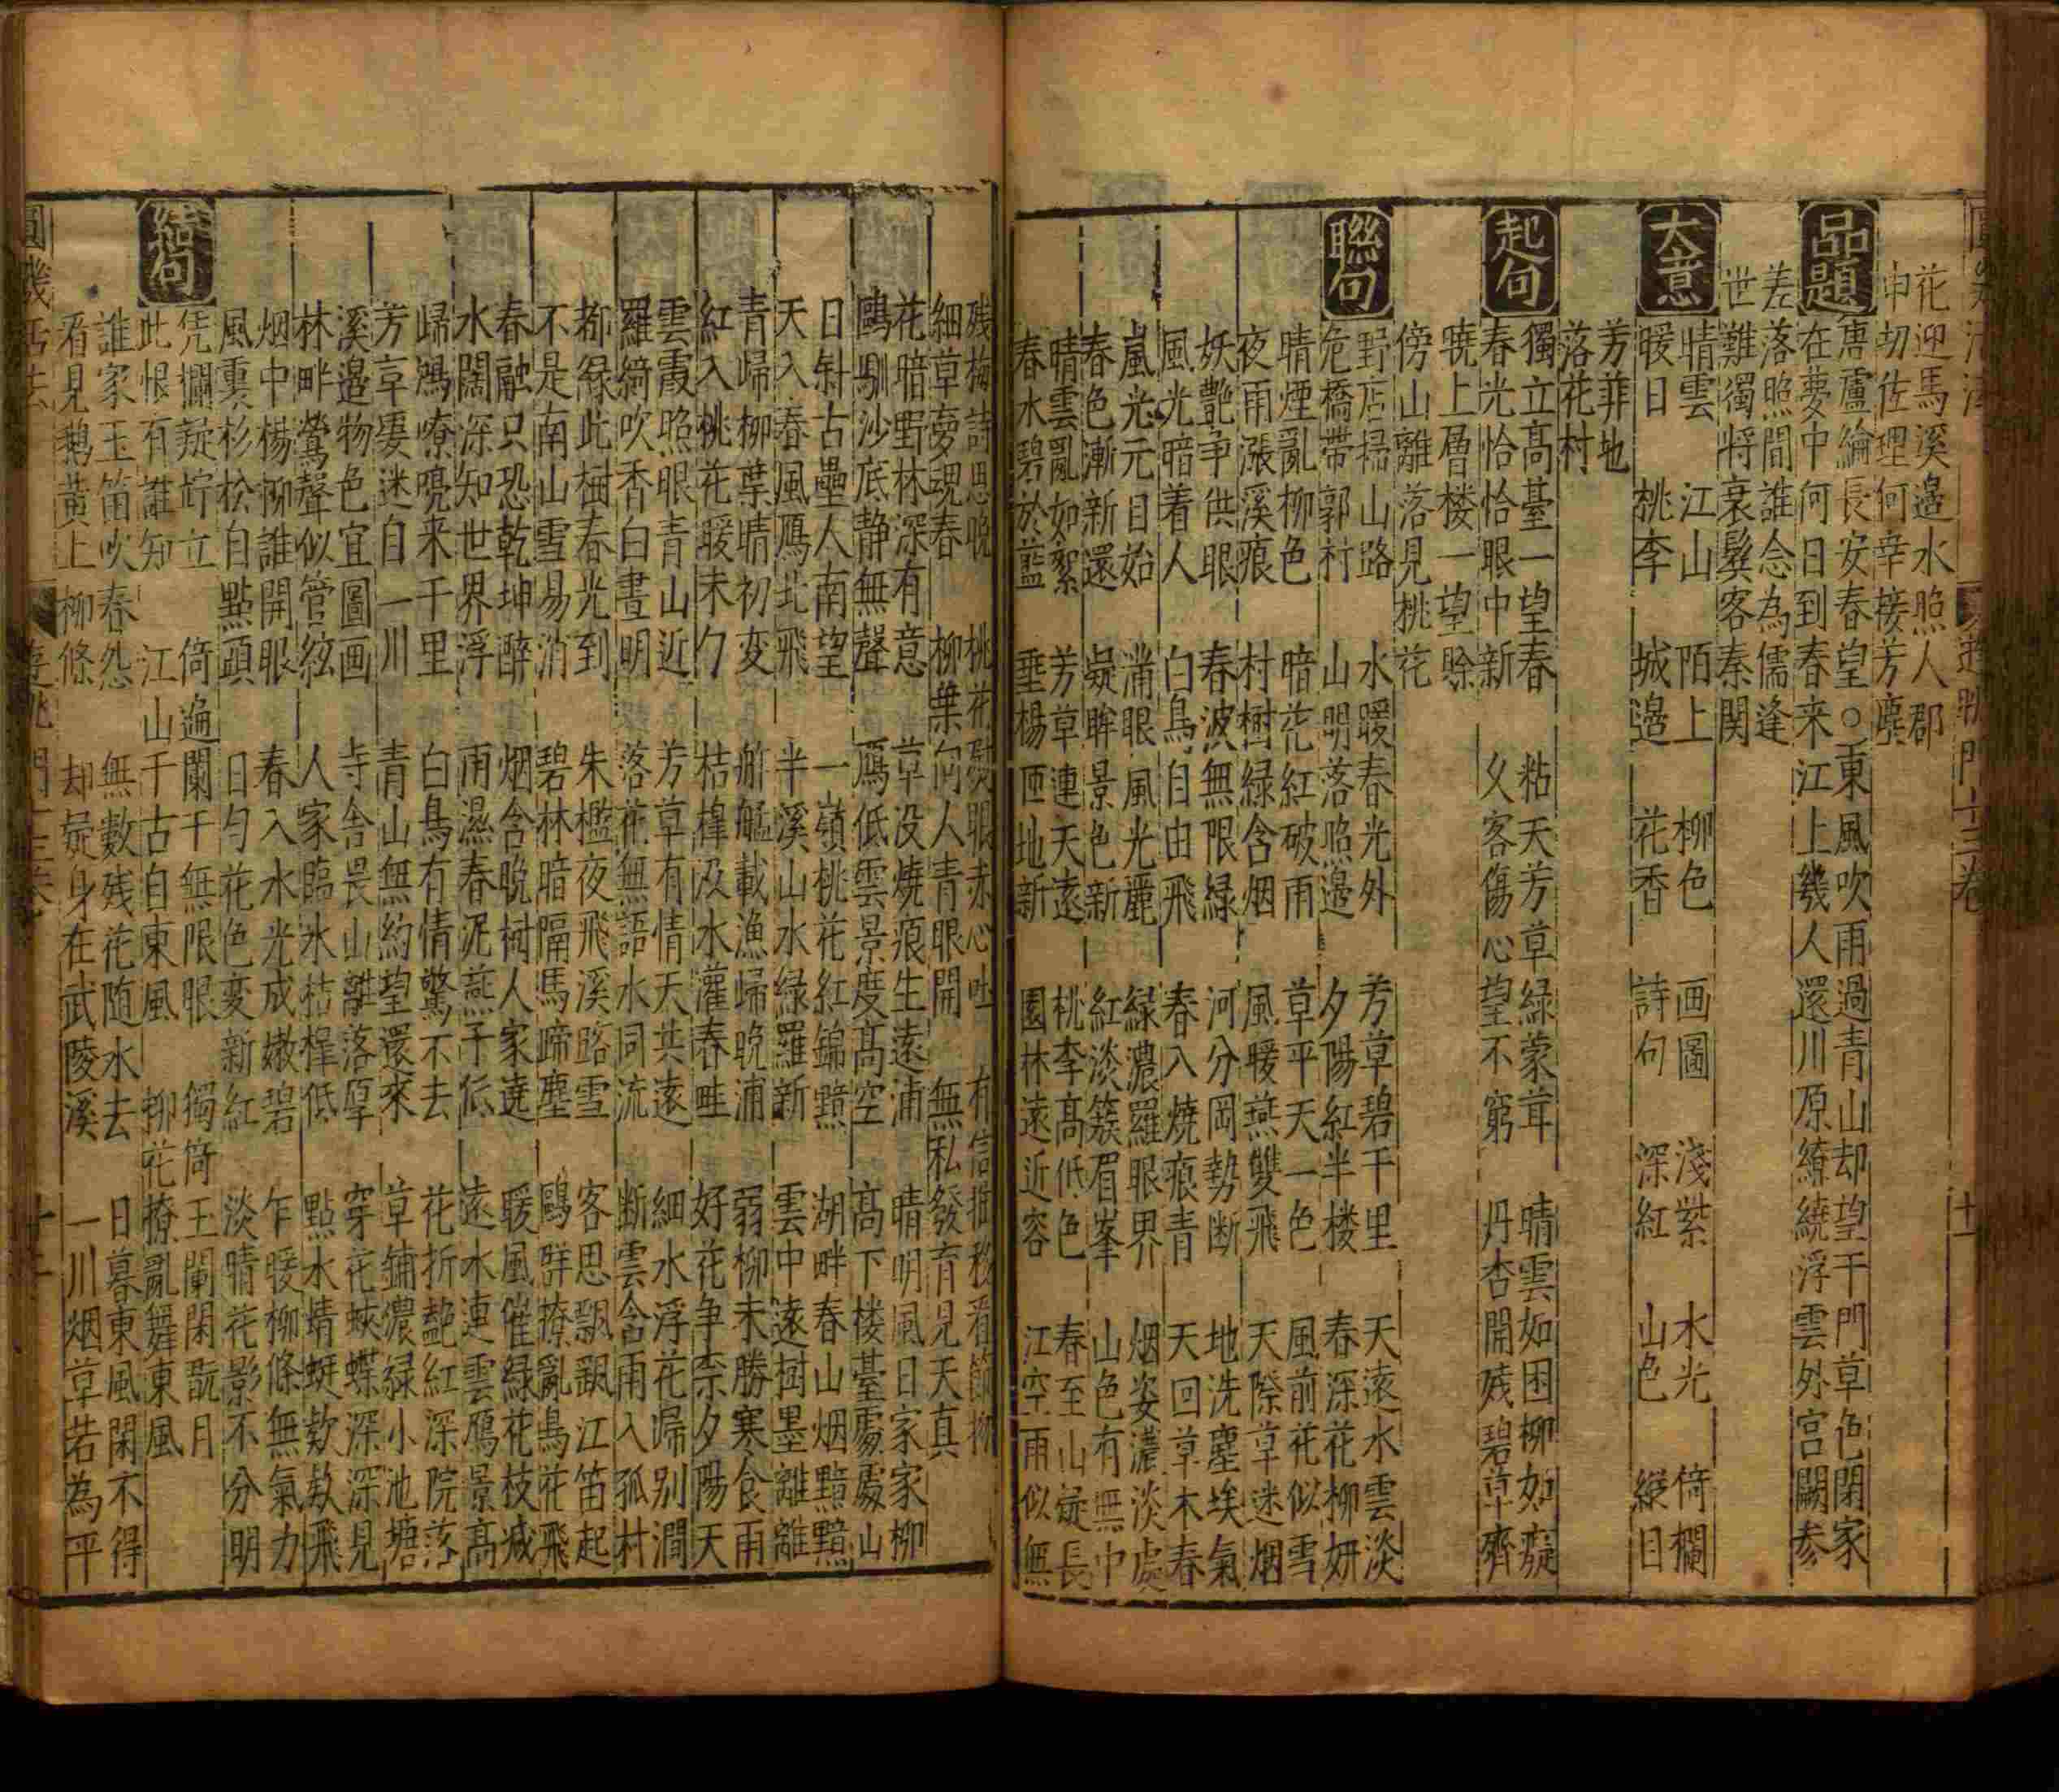 花迎馬溪邊水照人郡
中切佐理何幸接芳塵
品題 唐盧綸長安春望○東風吹雨過青山却望千門草色閑家
在夢中何日到春来江上幾人還川原繚繞浮雲外宫闕參
差落照間誰念為儒逢
世難獨將衰鬂客秦関
大意 晴雲 江山 陌上 柳色 画圖 淺紫 水光 倚欄
暖日 桃李 城邊 花香 詩句 深紅 山色 縱目
芳菲地
落花村
起句 獨立高臺一望春 粘天芳草緑蒙茸 晴雲如困柳如癡
春光恰恰眼中新 久客傷心望不窮 丹杏開残碧草齊
曉上層楼一望賖
傍山離落見桃花
聯句 野店掃山路 水暖春光外 芳草碧千里 天遠水雲淡
危橋帶郭村 山明落照邊 夕陽紅半楼 春深花柳妍
晴煙亂柳色 暗花紅破雨 草平天一色 風前花似雪
夜雨漲溪痕 村樹緑含烟 風暖燕雙飛 天際草迷烟
妖艷争供眼 春波無限緑 河分岡勢断 地洗塵埃氣
風光暗着人 白鳥自由飛 春入燒痕青 天回草木春
嵐光元日始 滿眼風光麗 緑濃羅眼界 烟姿濃淡處
春色漸新還 凝眸景色新 紅淡簇眉峯 山色有無中
晴雲亂如絮 芳草連天遠 桃李高低色 春至山凝長
春水碧於藍 垂楊匝地新 園林遠近容 江空雨似無
残梅詩思晚 桃花熨眼赤心吐 有信推移看節物
細草夢魂春 柳葉向人青眼開 無私發育見天真
花暗野林深有意 草没燒痕生遠浦 晴明風日家家柳
鷗馴沙底静無聲 鴈低雲景度髙空 髙下楼臺處處山
日斜古壘人南望 一嶺桃花紅錦黯 湖畔春山烟黯黯
天入春風鴈北飛 半溪山水緑羅新 雲中遠樹墨離離
青歸柳葉晴初変 舴艋載漁歸晚浦 弱柳未勝寒食雨
紅入桃花暖未勻 桔槹汲水灌春畦 好花争奈夕陽天
雲霞照眼青山近 芳草有情天共遠 細水浮花歸别澗
羅綺吹香白晝明 落花無語水同流 断雲含雨入孤村
都縁此樹春光到 朱檻夜飛溪路雪 客思飄飄江笛起
不是南山雪易消 碧林暗隔馬蹄塵 鷗群撩亂鳥花飛
春融只恐乾坤醉 烟含晚樹人家遶 暖風催緑花枝减
水闊深知世界浮 雨濕春泥燕子低 遠水連雲鴈景髙
歸鴻嘹喨来千里 白鳥有情驚不去 花折艶紅深院落
芳草凄迷自一川 青山無約望還來 草鋪儂緑小池塘
溪邉物色宜圖画 寺舎畏山離落厚 穿花蛺蝶深深見
林畔鶯聲似管絃 人家臨水桔槹低 點水蜻蜓欵欵飛
烟中楊柳誰開眼 春入水光成嫩碧 乍暖柳條無氣力
風裏杉松自點頭 日勻花色変新紅 淡晴花影不分明
結句 凭欄凝竚立 倚遍闌干無限眼 獨倚玉闌閑翫月
此恨有誰知 江山千古自東風 柳花撩亂舞東風
誰家玉笛吹春怨 無數残花随水去 日暮東風閑不得
看見鵝黄上柳條 却疑身在武陵溪 一川烟草若為平